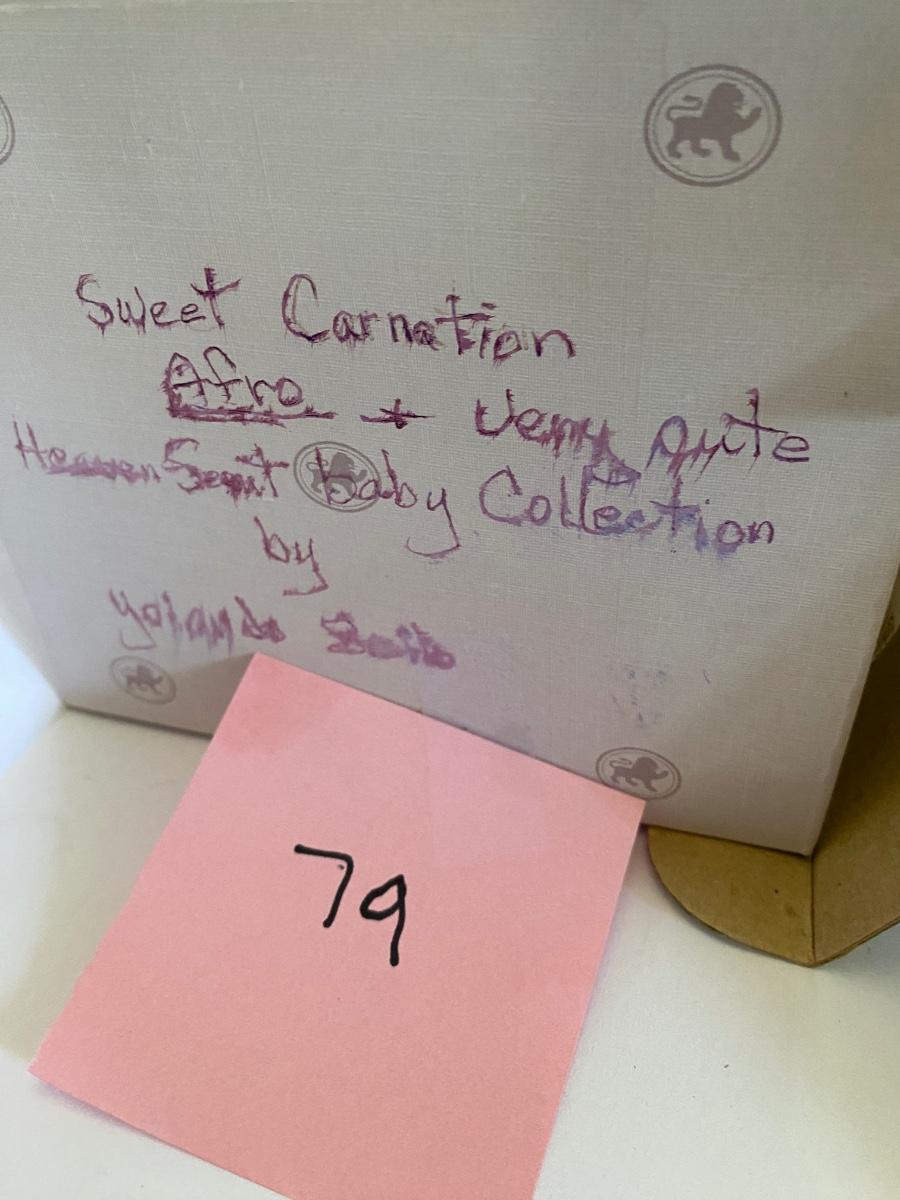 Sweet Carnation
Afro + Very qute
Heaven Sent baby Collection
by
yolanda
79